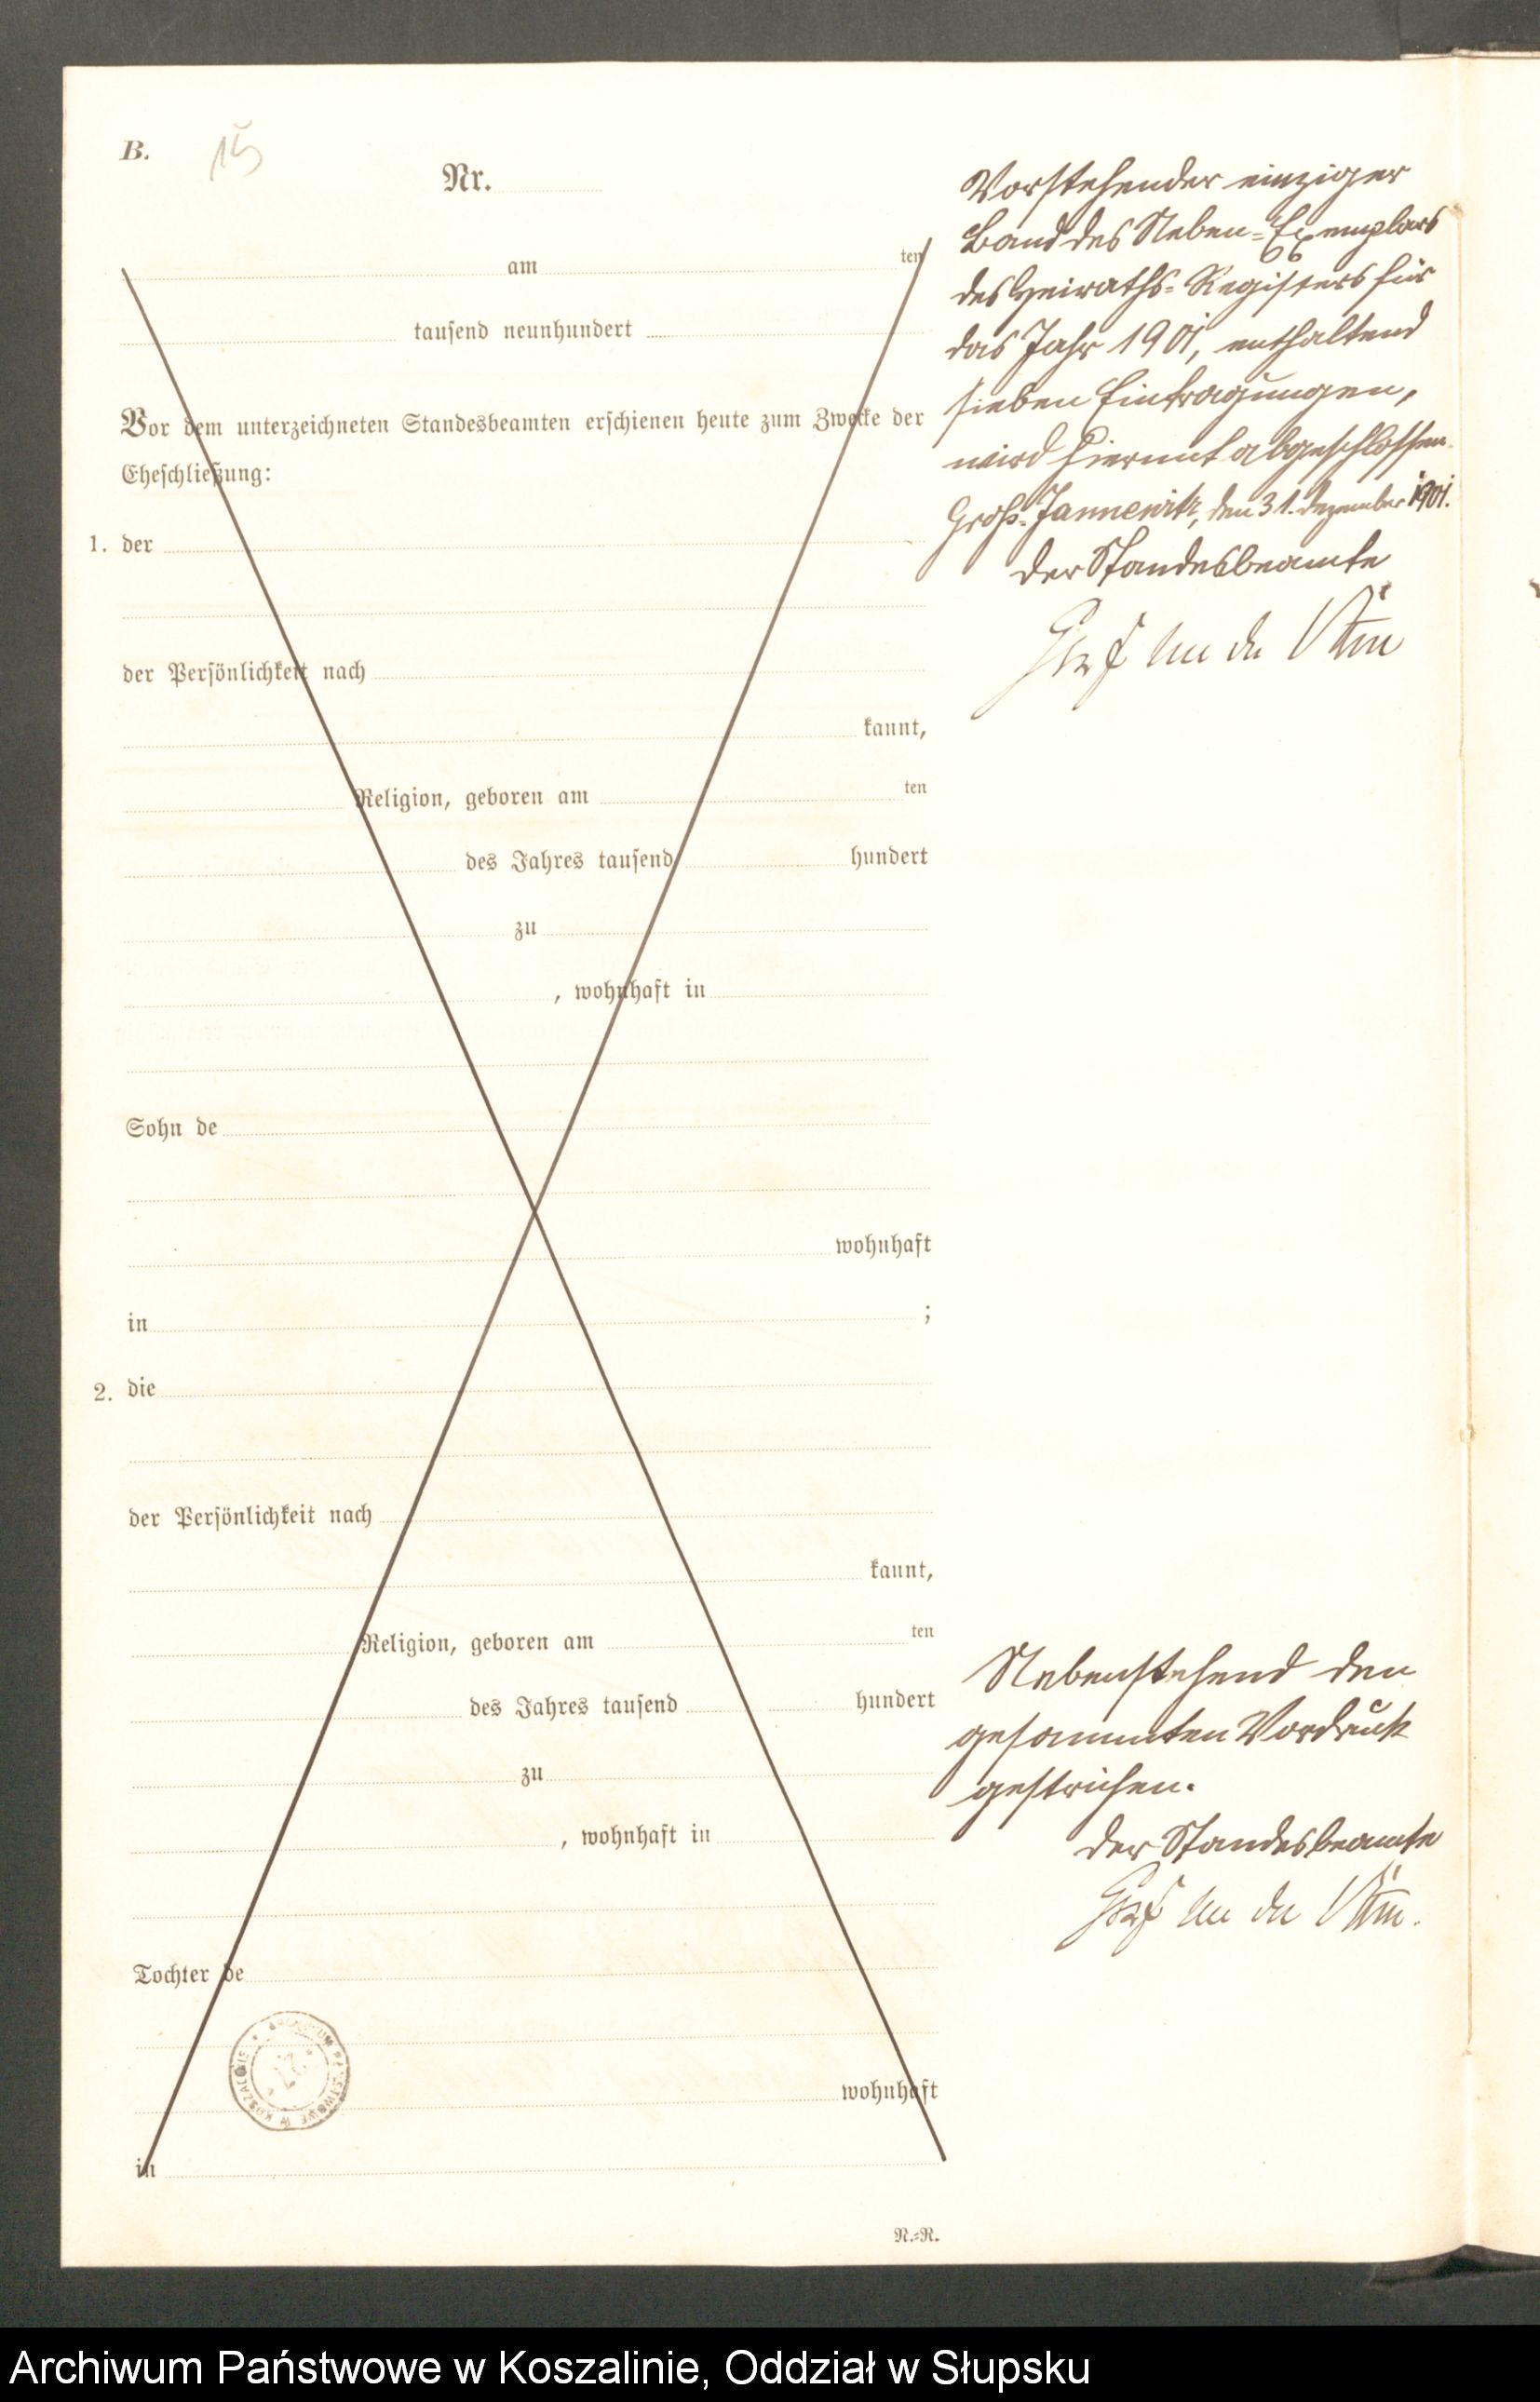 B.
15
Nr.
am ten
tausend neunhundert
Vor dem unterzeichneten Standesbeamten erschienen heute zum Zwecke der
Eheschließung:
1. der
der Persönlichkeit nach
kannt,
Religion, geboren am ten
des Jahres tausend hundert
zu
, wohnhaft in
Sohn de
wohnhaft
in ;
2. die
der Persönlichkeit nach
kannt,
Religion, geboren am ten
des Jahres tausend hundert
zu
, wohnhaft in
Tochter de
wohnhaft
in
N.=R.
Vorstehender einziger
Band des Neben=Exemplars
des Heiraths=Registers für
das Jahr 1901, enthaltend
sieben Eintragungen,
wird hiermit abgeschlossen.
Groß=Jannewitz, den 31. Dezember 1901.
Der Standesbeamte
Graf von der
Nebenstehend den
gesammten Vordruck
gestrichen.
Der Standesbeamte
Graf von der
ARCHIWUM PAŃSTWOWE W KOSZALINIE
Archiwum Państwowe w Koszalinie, Oddział w Słupsku